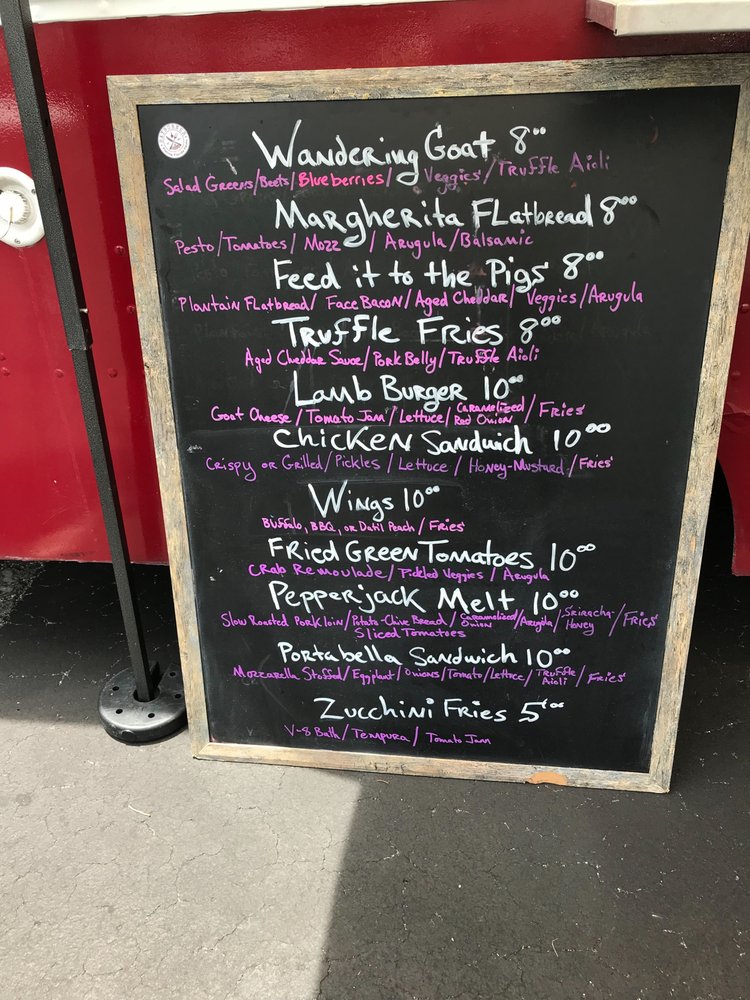 Wandering Goat 8⁰⁰
Salad Greens/Beets/Blueberries/ Veggies/Truffle Aioli
Margherita Flatbread 8⁰⁰
Pesto/Tomatoes/Mozz/Arugula/Balsamic
Feed it to the Pigs 8⁰⁰
Plantain Flatbread/Face Bacon/Aged Cheddar/Veggies/Arugula
Truffle Fries 8⁰⁰
Aged Cheddar Sauce/Pork Belly/Truffle Aioli
Lamb Burger 10⁰⁰
Goat Cheese/Tomato Jam/Lettuce/Caramelized Red Onion/Fries
Chicken Sandwich 10⁰⁰
Crispy or Grilled/Pickles/Lettuce/Honey-Mustard/Fries
Wings 10⁰⁰
Buffalo, BBQ, or Datil Peach/Fries
Fried Green Tomatoes 10⁰⁰
Crab Remoulade/Pickled Veggies/Arugula
Pepperjack Melt 10⁰⁰
Slow Roasted Pork loin/Potato-Chive Bread/Caramelized Onion/Arugula/Sriracha-Honey/Fries
Sliced Tomatoes
Portabella Sandwich 10⁰⁰
Mozzarella Stuffed/Eggplant/Onions/Tomato/Lettuce/Truffle Aioli/Fries
Zucchini Fries 5⁰⁰
V-8 Bath/Tempura/Tomato Jam